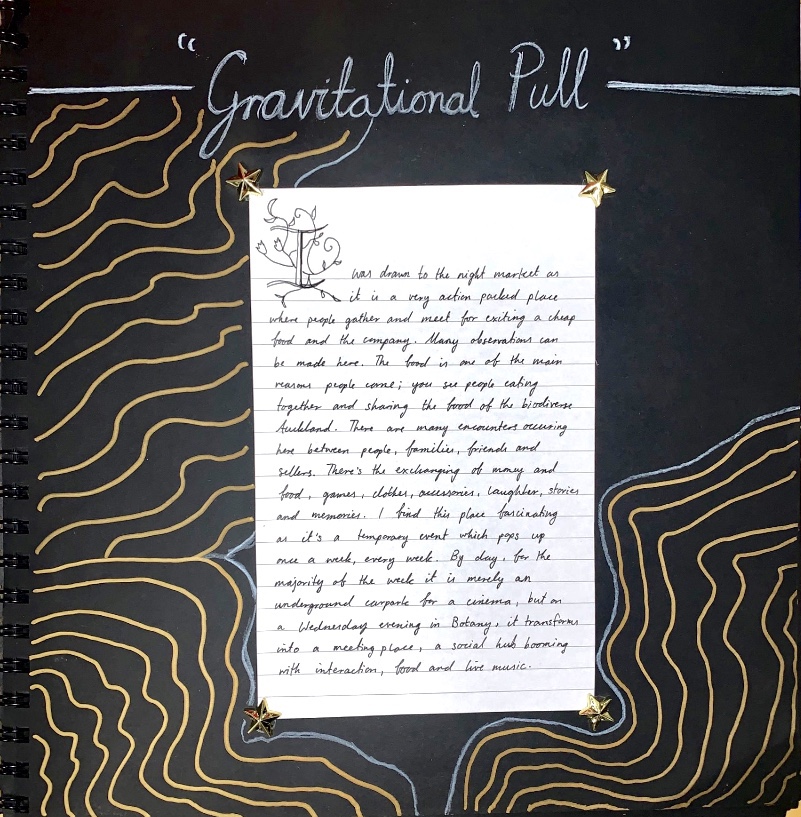 "Gravitational Pull"
I was drawn to the night market as
it is a very action packed place
where people gather and meet for exiting a cheap
food and the company. Many observations can
be made here. The food is one of the main
reasons people come; you see people eating
together and sharing the food of the biodiverse
Auckland. There are many encounters occuring
here between people, families, friends and
sellers. There's the exchanging of money and
food, games, clothes, accessories, laughter, stories
and memories. I find this place fascinating
as it's a temporary event which pops up
once a week, every week. By day, for the
majority of the week it is merely an
underground carpark for a cinema, but on
a Wednesday evening in Botany, it transforms
into a meeting place, a social hub booming
with interaction, food and live music.